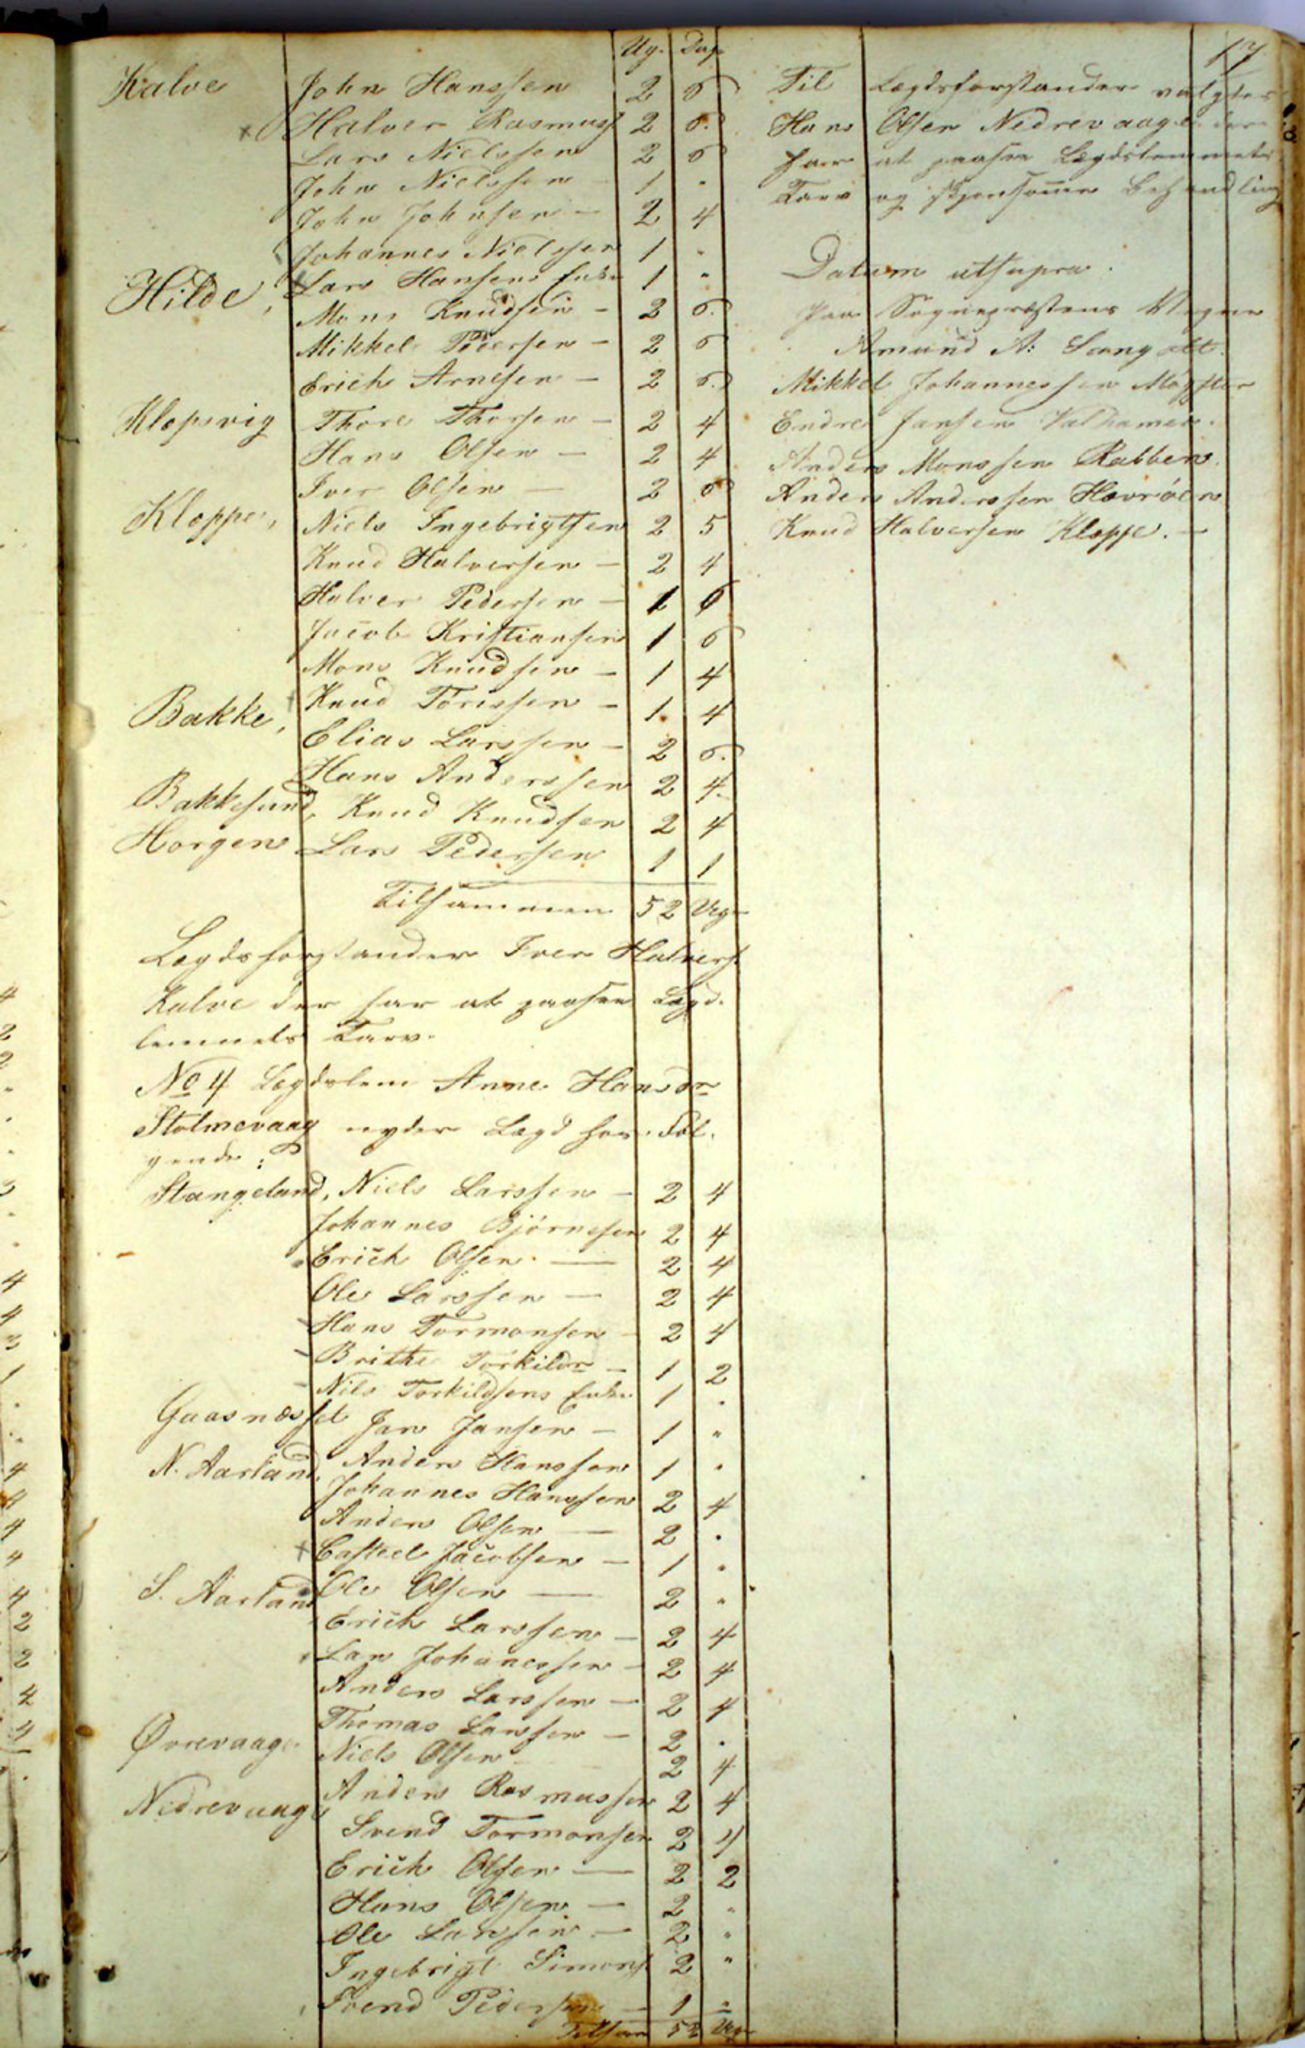 17
Ug. Dag
Kalve John Hanssen 2 6
Halver Rasmuss 2 6.
Lars Nielssen 2 6
John Nielssen – 1 "
John Johnsen – 2 4
Johannes Nielssen 1 "
Hilde, Lars Hansens Enke 1 "
Mons Knudsen – 2 6.
Mikkel Pedersen – 2 6
Erich Arnesen – 2 6.
Klepsvig Thore Thorsen – 2 4
Hans Olsen – 2 4
Iver Olsen – 2 6
Kleppe, Niels Ingebrigtsen 2 5
Knud Halversen – 2 4
Halver Pedersen – 1 6
Jacob Kristiansen 1 6
Mons Knudsen – 1 4
Bakke, Knud Torissen – 1 4
Elias Larssen – 2 6.
Hans Anderssen 2 4
Bakkesund, Knud Knudsen 2 4
Horgen Lars Pedersen 1 1
Tilsammen 52 Uger
Lægdsforstander Iver Halvers.
Kalve der har at paasee Lægd.
lemmets Tarv.
No 4 Lægdslem Anne Hansdr
Stolmevaag nyder Lægd hos Føl.
gende:
Stangeland, Niels Larssen – 2 4
Johannes Bjørnesen 2 4
Erich Olsen. — 2 4
Ole Larssen – 2 4
Hans Tormonsen – 2 4
Brithe Torkildr – 1 2
Nils Torkildsens Enke 1 "
Gaasnæsset Jan Jansen – 1 "
N. Aarland, Anders Hanssen 1 "
Johannes Hanssen 2 4
Anders Olsen — 2 "
Jacobsen – 1 "
S. Aarland Ole Olsen — 2 "
Erich Larssen – 2 4
Lars Johanessen – 2 4
Anders Larssen – 2 4
Thomas Larssen – 2 "
Øvrevaage Niels Olsen 2 4
Nedrevaage Anders Rasmussen 2 4
Svend Tormonsen 2 4
Erich Olsen — 2 2
Hans Olsen – 2 "
Ole Larssen – 2 "
Ingebrigt Simons 2 "
Svend Pedersen – 1 "
Tilsam 52 Uger
Til Lægdsforstander valgtes
Hans Olsen Nedrevaage der
har at paasee Lægdslemmets
Tarv og skjønsomme Behandling
Datum utsupra.
Paa Sognepræstens Vegne
Amund A:
Mikkel Johannessen Møgster
Endre Jansen Valhammer.
Anders Monssen Rabben.
Anders Anderssen Hevrøen
Knud Halversen Kleppe. –